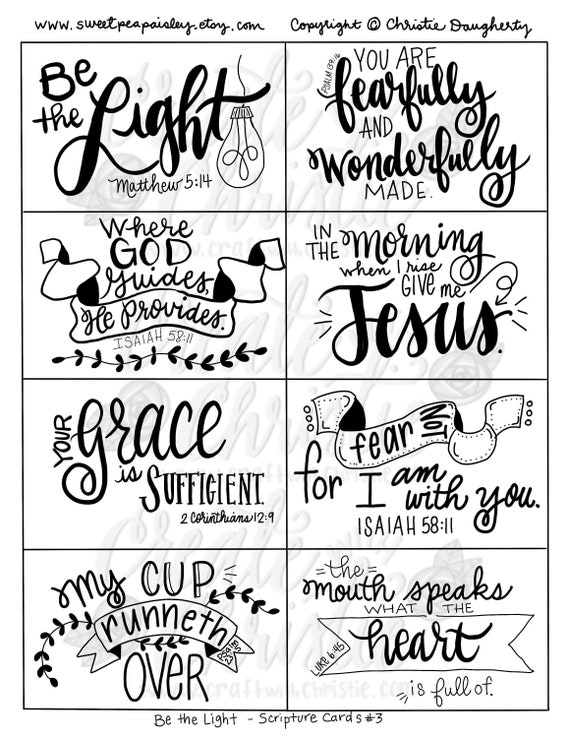 www.sweetpeapaisley.etsy.com Copyright © Christie Daugherty
Be
the Light
Matthew 5:14
PSALM 139:16
YOU ARE
fearfully
AND
wonderfully
MADE.
Where
GOD
Guides,
He Provides.
ISAIAH 58:11
IN
THE Morning
when I rise
GIVE me
Jesus.
YOUR Grace
is SUFFICIENT.
2 Corinthians 12:9
fear NOT
for I am
with you.
ISAIAH 58:11
My CUP
runneth
OVER
the
mouth speaks
WHAT THE
heart
LUKE 6:45
is full of.
Create with
Christie
www.craftwithchristie.com
Be the Light - Scripture Cards #3